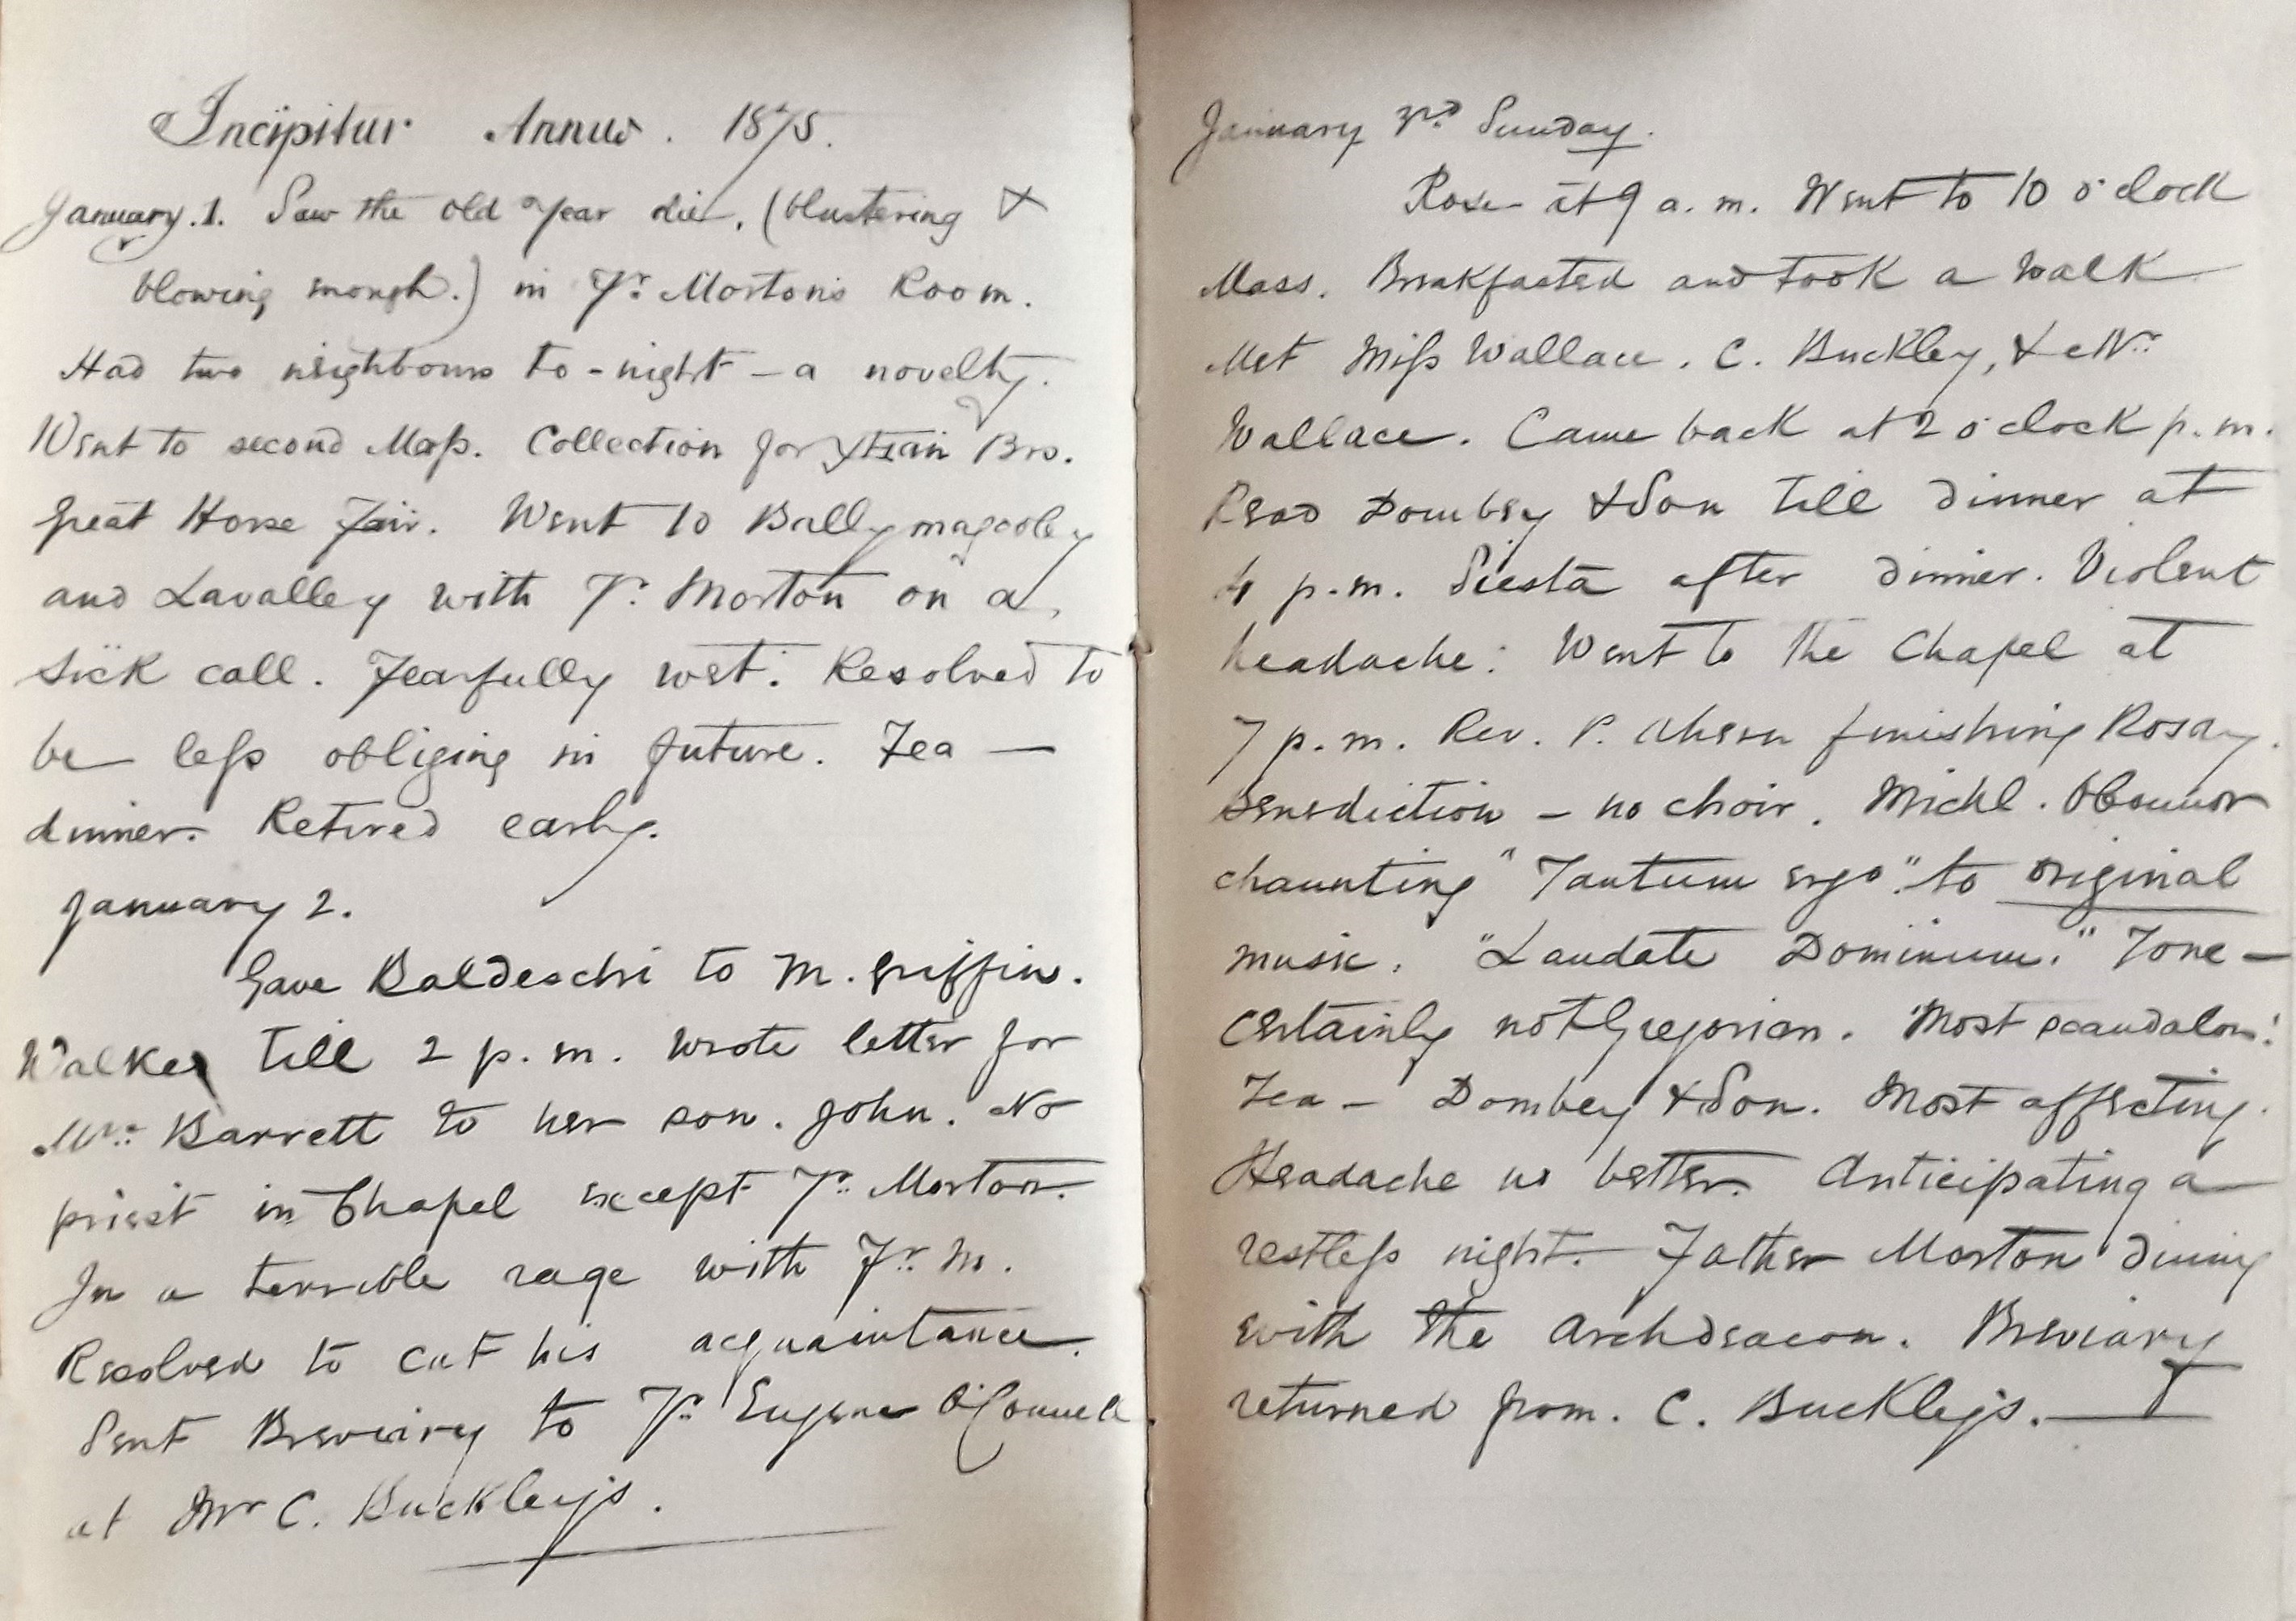 Incipitur Annus. 1875.
January. 1. Saw the old Year die, (blustering &
blowing enough.) in Fr. Morton's Room.
Had two neighbours to-night – a novelty.
Went to second Mass. Collection for Xtian Bro.
Great Horse Fair. Went to Ballymagooley
and Lavalley with Fr. Morton on a
sick call. Fearfully wet. Resolved to
be less obliging in future. Tea —
dinner. Retired early.
January 2.
Gave Baldeschi to M. Griffin.
Walked till 2 p.m. Wrote letter for
Mrs. Barrett to her son. John. No
priest in Chapel except Fr. Morton.
In a terrible rage with Fr. M.
Resolved to cut his acquaintance.
Sent Breviary to Fr. Eugene O'Connell.
at Mr C. Buckley's.
January 3rd Sunday.
Rose at 9 a.m. Went to 10 o'clock
Mass. Breakfasted and took a walk
Met Miss Wallace. C. Buckley, & Mr.
Wallace. Came back at 2 o'clock p.m.
Read Dombey & Son till dinner at
4 p.m. Siesta after dinner. Violent
headache: Went to the Chapel at
7 p.m. Rev. P. Ahern finishing Rosary.
Benediction – no choir. Michl. O'Connor
chaunting "Tantum ergo" to original
music. "Laudate Dominum." Tone –
certainly not Gregorian. Most scandalous!
Tea – Dombey & Son. Most affecting.
Headache no better. Anticipating a
restless night. Father Morton dining
with the Archdeacon. Breviary
returned from. C. Buckley's.